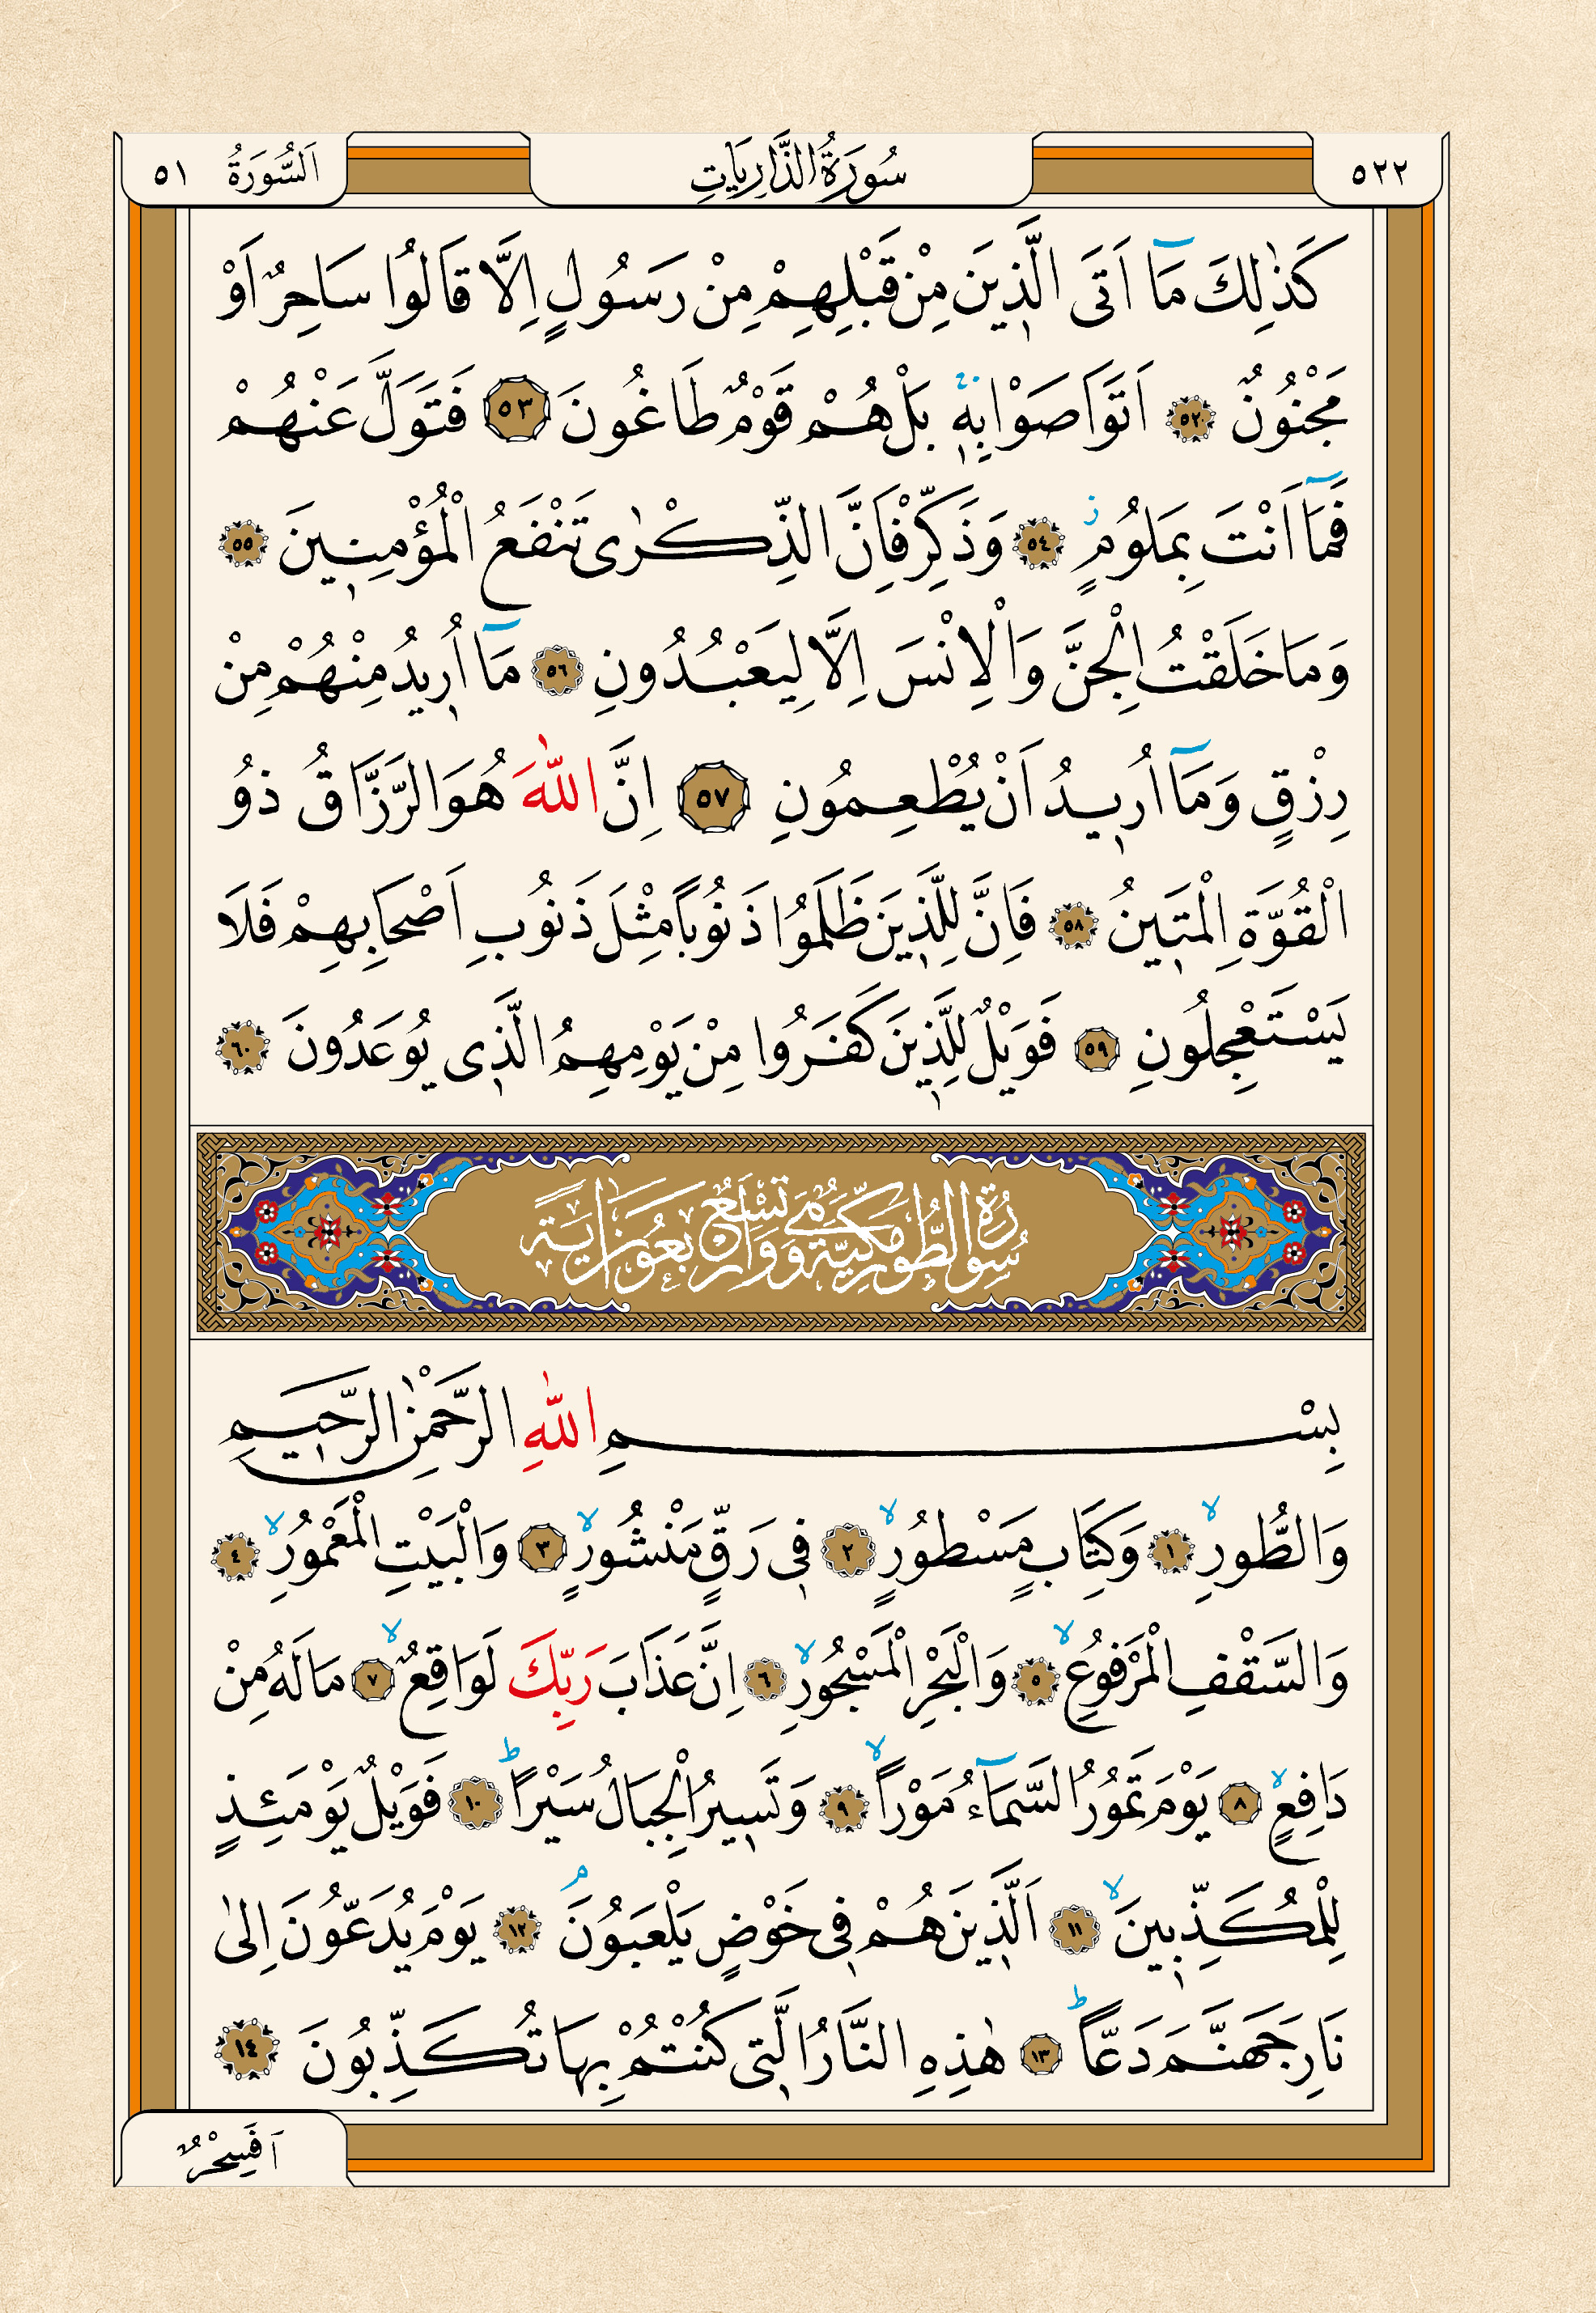 ٥٢٢ سُورَةُ الذَّارِيَاتِ اَلسُّورَةُ ٥١
كَذٰلِكَ مَٓا اَتَى الَّذ۪ينَ مِنْ قَبْلِهِمْ مِنْ رَسُولٍ اِلَّا قَالُوا سَاحِرٌ اَوْ
مَجْنُونٌ ٥٢ اَتَوَاصَوْا بِه۪ۚ بَلْ هُمْ قَوْمٌ طَاغُونَ ٥٣ فَتَوَلَّ عَنْهُمْ
فَمَٓا اَنْتَ بِمَلُومٍۘ ٥٤ وَذَكِّرْ فَاِنَّ الذِّكْرٰى تَنْفَعُ الْمُؤْمِن۪ينَ ٥٥
وَمَا خَلَقْتُ الْجِنَّ وَالْاِنْسَ اِلَّا لِيَعْبُدُونِ ٥٦ مَٓا اُر۪يدُ مِنْهُمْ مِنْ
رِزْقٍ وَمَٓا اُر۪يدُ اَنْ يُطْعِمُونِ ٥٧ اِنَّ اللّٰهَ هُوَ الرَّزَّاقُ ذُو
الْقُوَّةِ الْمَت۪ينُ ٥٨ فَاِنَّ لِلَّذ۪ينَ ظَلَمُوا ذَنُوباً مِثْلَ ذَنُوبِ اَصْحَابِهِمْ فَلَا
يَسْتَعْجِلُونِ ٥٩ فَوَيْلٌ لِلَّذ۪ينَ كَفَرُوا مِنْ يَوْمِهِمُ الَّذ۪ي يُوعَدُونَ ٦٠
سُورَةُ الطُّورِ مَكِّيَّةٌ وَهِيَ تِسْعٌ وَاَرْبَعُونَ اٰيَةً
بِسْمِ اللّٰهِ الرَّحْمٰنِ الرَّح۪يمِ
وَالطُّورِۙ ١ وَكِتَابٍ مَسْطُورٍۙ ٢ ف۪ي رَقٍّ مَنْشُورٍۙ ٣ وَالْبَيْتِ الْمَعْمُورِۙ ٤
وَالسَّقْفِ الْمَرْفُوعِۙ ٥ وَالْبَحْرِ الْمَسْجُورِۙ ٦ اِنَّ عَذَابَ رَبِّكَ لَوَاقِعٌۙ ٧ مَا لَهُ مِنْ
دَافِعٍۙ ٨ يَوْمَ تَمُورُ السَّمَٓاءُ مَوْراًۙ ٩ وَتَس۪يرُ الْجِبَالُ سَيْراًۜ ١٠ فَوَيْلٌ يَوْمَئِذٍ
لِلْمُكَذِّب۪ينَۙ ١١ اَلَّذ۪ينَ هُمْ ف۪ي خَوْضٍ يَلْعَبُونَۢ ١٢ يَوْمَ يُدَعُّونَ اِلٰى
نَارِ جَهَنَّمَ دَعاًّۜ ١٣ هٰذِهِ النَّارُ الَّت۪ي كُنْتُمْ بِهَا تُكَذِّبُونَ ١٤
اَفَسِحْرٌ